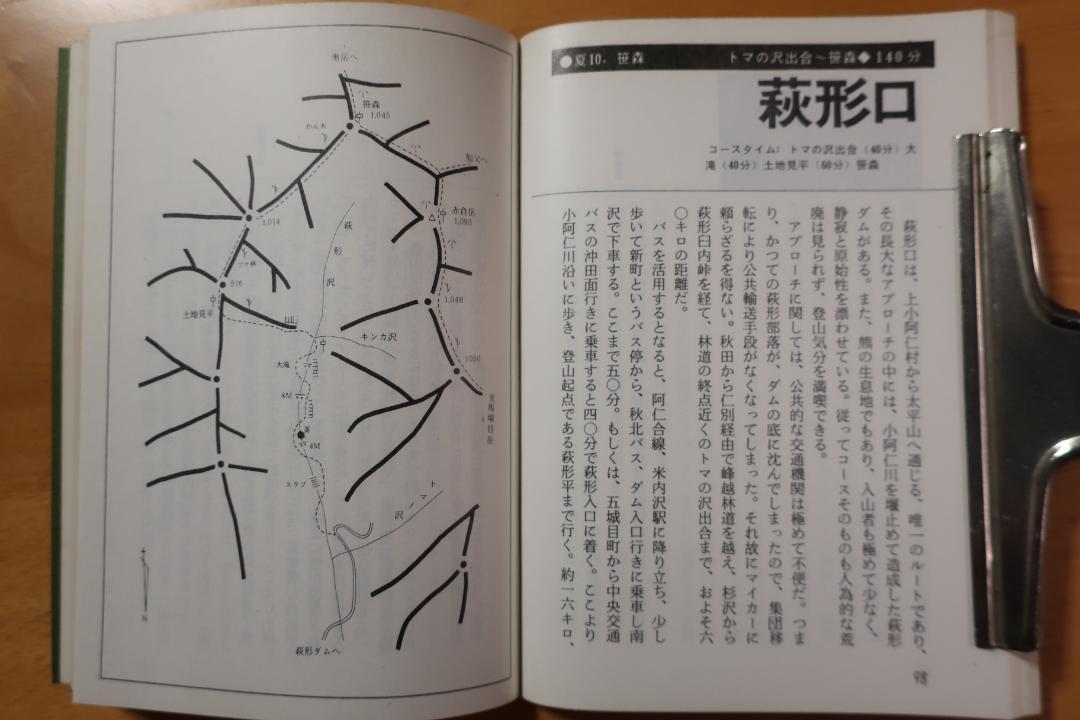 ●夏10. 笹森
トマの沢出合～笹森◆140分
萩形口
コースタイム: トマの沢出合（40分）大
滝（40分）土地見平（60分）笹森
萩形口は、上小阿仁村から太平山へ通じる、唯一のルートであり、
その長大なアプローチの中には、小阿仁川を堰止めて造成した萩形
ダムがある。また、熊の生息地でもあり、入山者も極めて少なく、
静寂と原始性を漂わせている。従ってコースそのものも人為的な荒
廃は見られず、登山気分を満喫できる。
アプローチに関しては、公共的な交通機関は極めて不便だ。つま
り、かつての萩形部落が、ダムの底に沈んでしまったので、集団移
転により公共輸送手段がなくなってしまった。それ故にマイカーに
頼らざるを得ない。秋田から仁別経由で峰越林道を越え、杉沢から
萩形臼内峠を経て、林道の終点近くのトマの沢出合まで、およそ六
〇キロの距離だ。
バスを活用するとなると、阿仁合線、米内沢駅に降り立ち、少し
歩いて新町というバス停から、秋北バス、ダム入口行きに乗車し南
沢で下車する。ここまで五〇分。もしくは、五城目町から中央交通
バスの沖田面行きに乗車すると四〇分で萩形入口に着く。ここより
小阿仁川沿いに歩き、登山起点である萩形平まで行く。約一六キロ、
98
奥岳へ
笹森
1,045
かん木
旭又へ
赤倉岳
1,093
1,014
萩形沢
ブナ林
916
土地見平
1,048
キンカ沢
大滝
1050
至馬場目岳
8M
釜
4M
スラブ
トマノ沢
N
萩形ダムへ